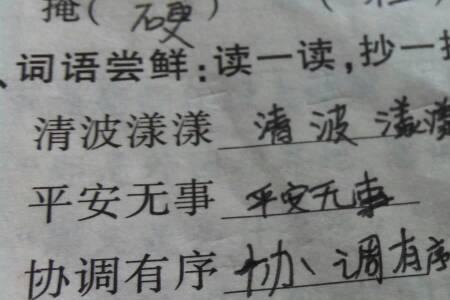 掩( 硬 )(
、词语尝鲜:读一读,抄一抄
清波漾漾 清波漾漾
平安无事 平安无事
协调有序 协调有序